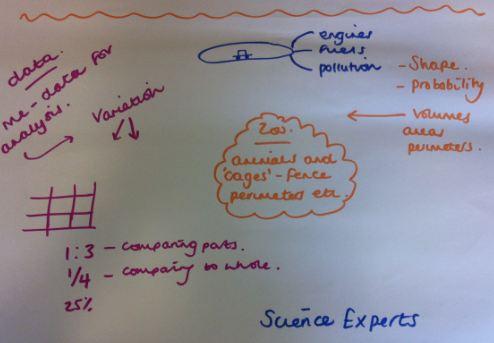 data.
me - data for
analysis.
Variation
engines
fuels
pollution
- Shape.
- probability
volumes
areas
perimeters.
Zoo.
animals and
'cages' - fence
perimeters etc.
1:3 - comparing parts.
1/4 - comparing to whole.
25%
Science Experts